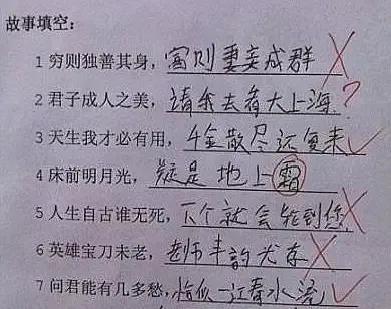 故事填空：
1 穷则独善其身，富则妻妾成群
2 君子成人之美，请我去看大上海？
3 天生我才必有用，千金散尽还复来
4 床前明月光，疑是地上霜
5 人生自古谁无死，下个就会轮到您
6 英雄宝刀未老，老师丰韵尤存
7 问君能有几多愁，恰似一江春水流